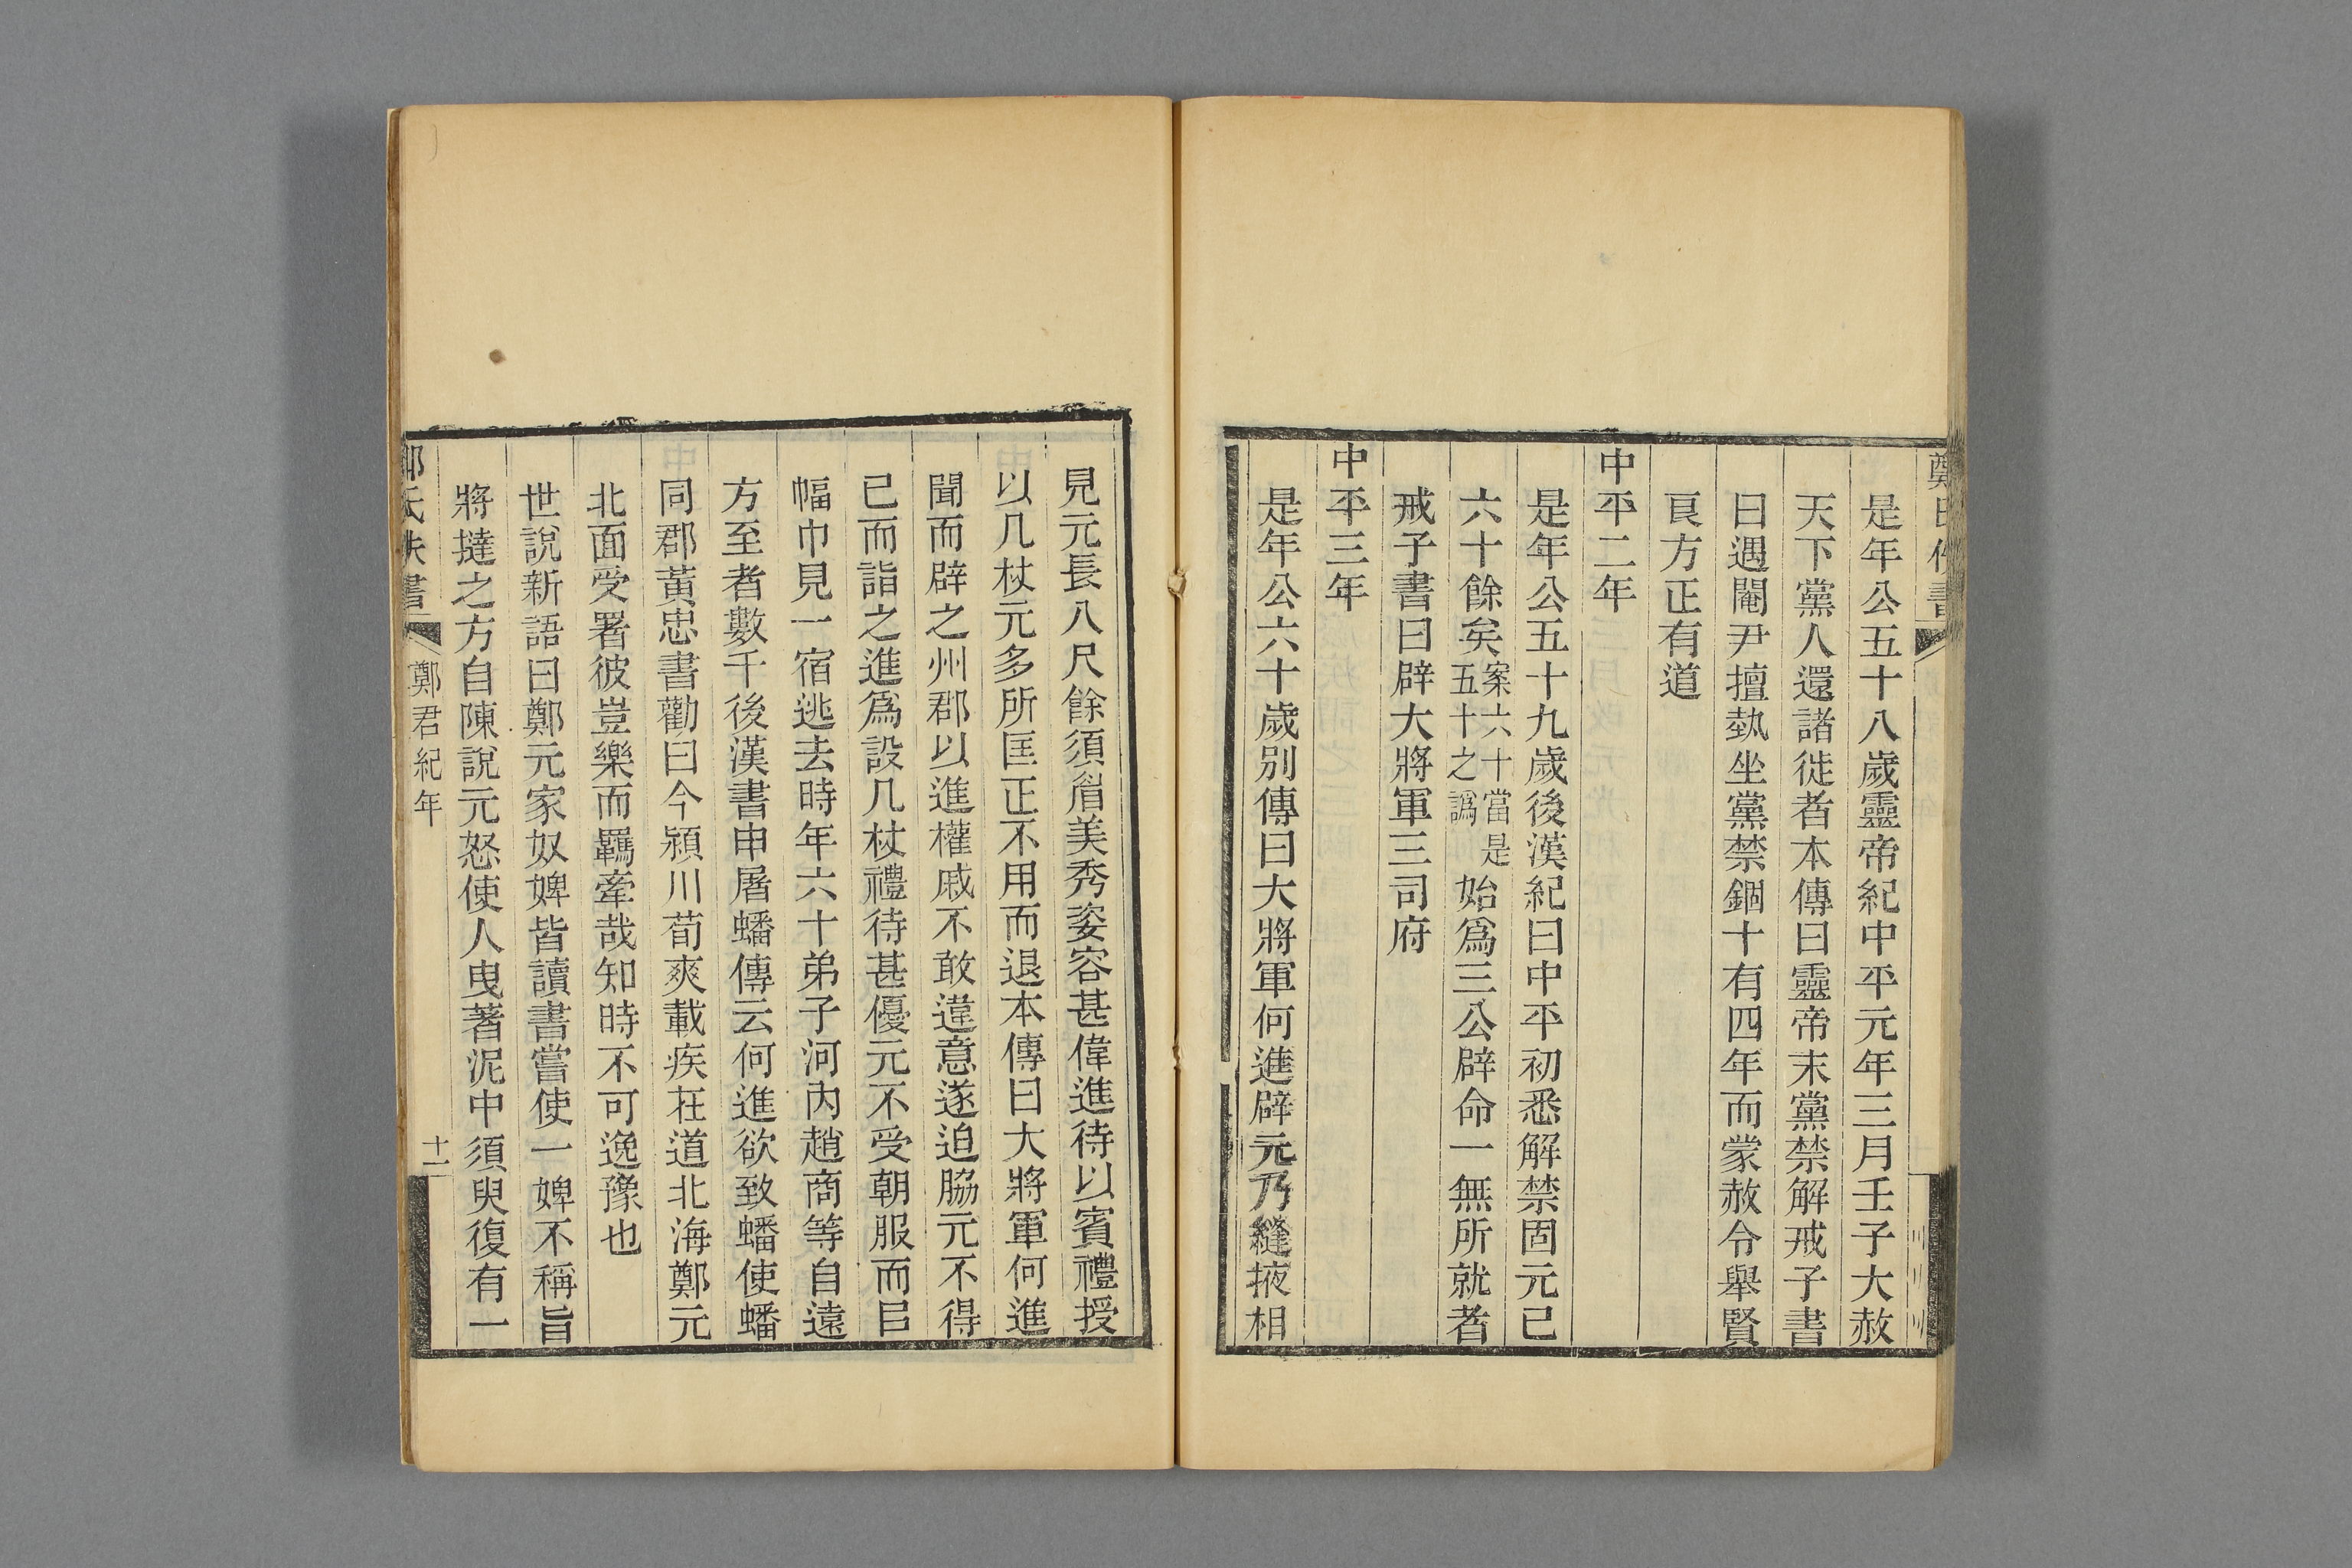 是年公五十八歲靈帝紀中平元年三月壬子大赦
天下黨人還諸徙者本傳曰靈帝末黨禁解戒子書
曰遇閹尹擅埶坐黨禁錮十有四年而蒙赦令舉賢
良方正有道
中平二年
是年公五十九歲後漢紀曰中平初悉解禁固元已
六十餘矣案六十當是五十之譌始爲三公辟命一無所就者
戒子書曰辟大將軍三司府
中平三年
是年公六十歲別傳曰大將軍何進辟元乃縫掖相
見元長八尺餘須眉美秀姿容甚偉進待以賓禮授
以几杖元多所匡正不用而退本傳曰大將軍何進
聞而辟之州郡以進權戚不敢違意遂迫脇元不得
已而詣之進爲設几杖禮待甚優元不受朝服而㠯
幅巾見一宿逃去時年六十弟子河內趙商等自遠
方至者數千後漢書申屠蟠傳云何進欲致蟠使蟠
同郡黃忠書勸曰今潁川荀爽載疾在道北海鄭元
北面受署彼豈樂而羈牽哉知時不可逸豫也
世說新語曰鄭元家奴婢皆讀書嘗使一婢不稱旨
將撻之方自陳說元怒使人曳著泥中須臾復有一
鄭君紀年
十一